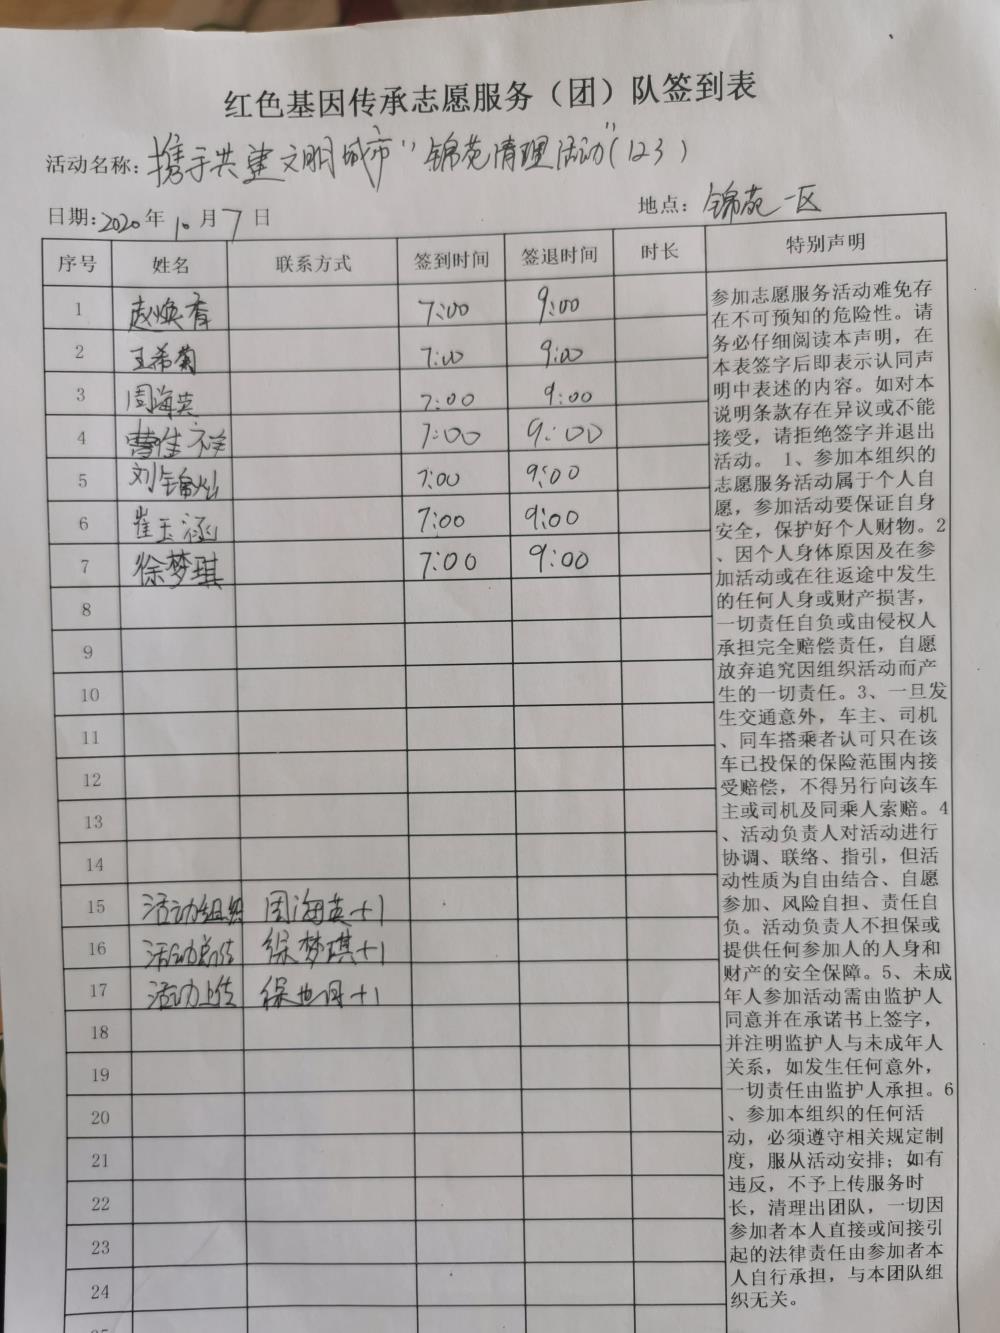 红色基因传承志愿服务（团）队签到表
活动名称：携手共建文明城市"锦苑清理活动"（123）
日期：2020年10月7日 地点：锦苑一区
序号 姓名 联系方式 签到时间 签退时间 时长 特别声明
1 赵焕香 7:00 9:00
2 王希菊 7:00 9:00
3 周海英 7:00 9:00
4 曹佳祥 7:00 9:00
5 刘锦灿 7:00 9:00
6 崔玉涵 7:00 9:00
7 徐梦琪 7:00 9:00
8
9
10
11
12
13
14
15 活动组织 周海英+1
16 活动宣传 徐梦琪+1
17 活动上传 +1
18
19
20
21
22
23
24
参加志愿服务活动难免存
在不可预知的危险性。请
务必仔细阅读本声明，在
本表签字后即表示认同声
明中表述的内容。如对本
说明条款存在异议或不能
接受，请拒绝签字并退出
活动。 1、参加本组织的
志愿服务活动属于个人自
愿，参加活动要保证自身
安全，保护好个人财物。2
、因个人身体原因及在参
加活动或在往返途中发生
的任何人身或财产损害，
一切责任自负或由侵权人
承担完全赔偿责任，自愿
放弃追究因组织活动而产
生的一切责任。3、一旦发
生交通意外，车主、司机
、同车搭乘者认可只在该
车已投保的保险范围内接
受赔偿，不得另行向该车
主或司机及同乘人索赔。4
、活动负责人对活动进行
协调、联络、指引，但活
动性质为自由结合、自愿
参加、风险自担、责任自
负。活动负责人不担保或
提供任何参加人的人身和
财产的安全保障。5、未成
年人参加活动需由监护人
同意并在承诺书上签字，
并注明监护人与未成年人
关系，如发生任何意外，
一切责任由监护人承担。6
、参加本组织的任何活
动，必须遵守相关规定制
度，服从活动安排；如有
违反，不予上传服务时
长，清理出团队，一切因
参加者本人直接或间接引
起的法律责任由参加者本
人自行承担，与本团队组
织无关。